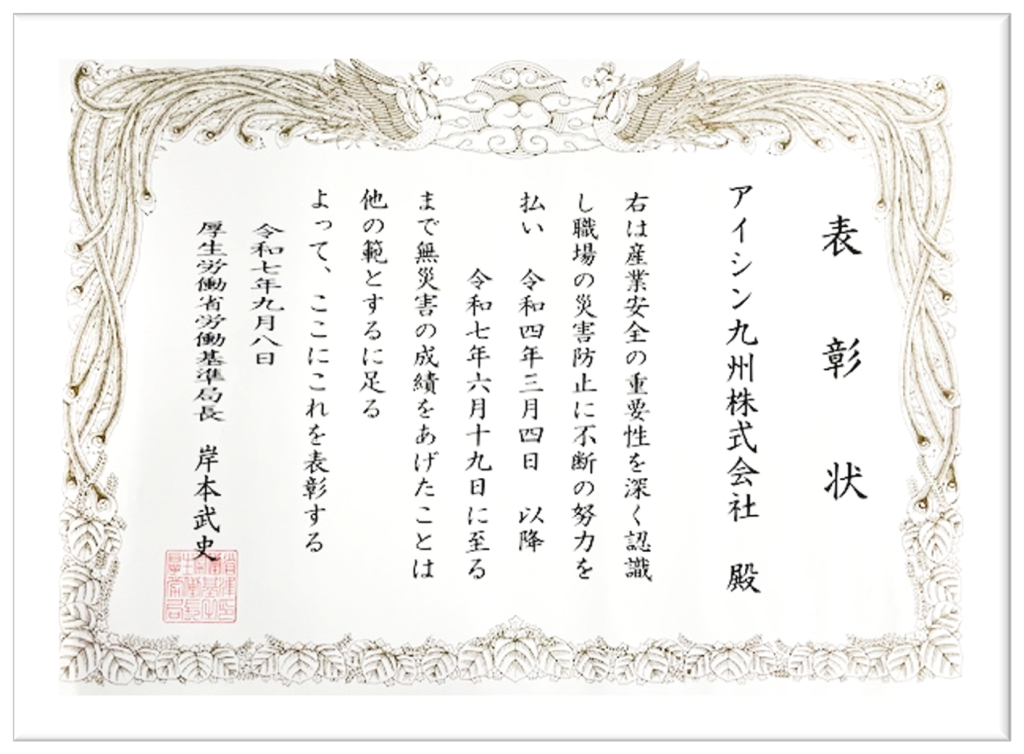 表彰状
アイシン九州株式会社 殿
右は産業安全の重要性を深く認識
し職場の災害防止に不断の努力を
払い 令和四年三月四日 以降
令和七年六月十九日に至る
まで無災害の成績をあげたことは
他の範とするに足る
よって、ここにこれを表彰する
令和七年九月八日
厚生労働省労働基準局長 岸本武史